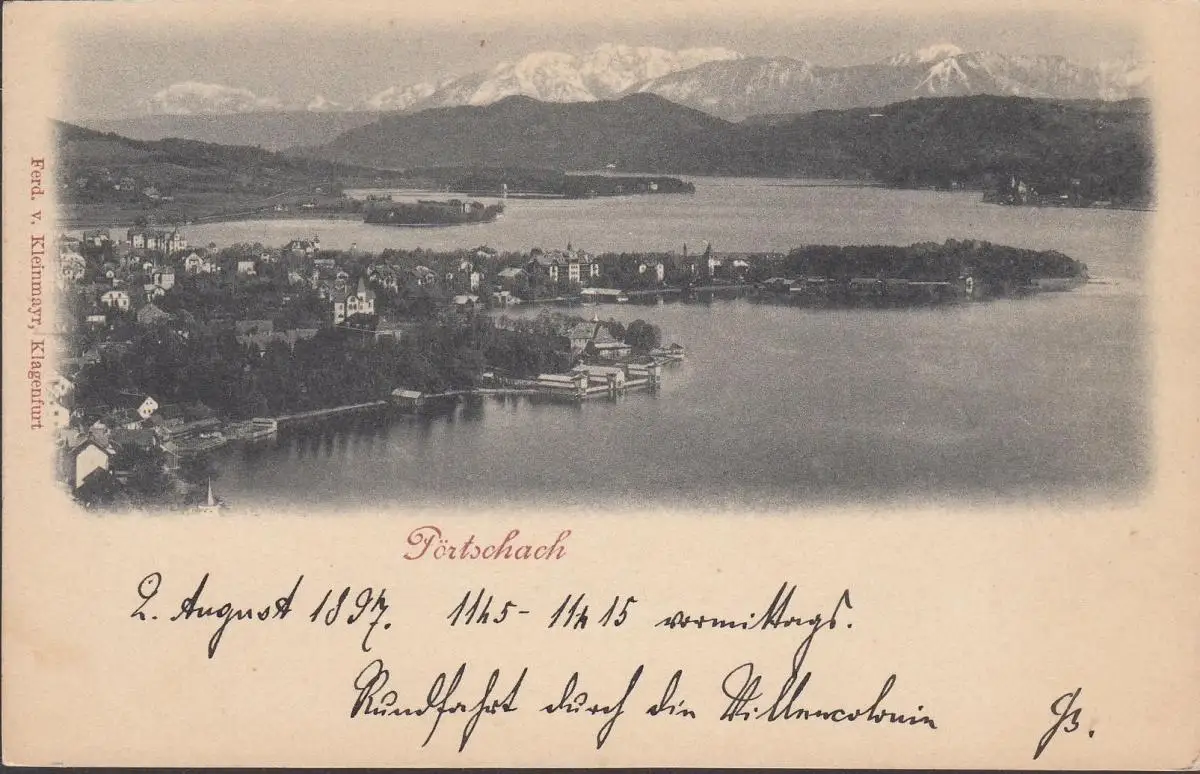 Ferd. v. Kleinmayr, Klagenfurt
Pörtschach
2. August 1897. 11h5 - 11h15 vormittags.
Rundfahrt durch die Villencolonie